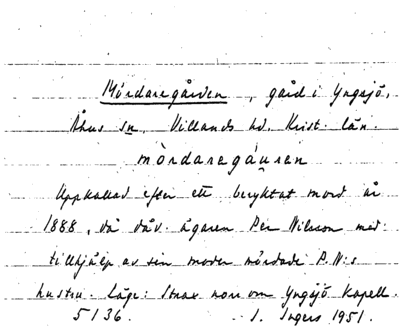 Mördaregården, gård i Yngsjö,
Åhus sn. Villands hd. Krist. län.
mördaregáuren
Uppkallad efter ett beryktat mord år
1888, då dåv. ägaren Per Nilsson med
tillhjälp av sin moder mördade P.N:s
hustru. Läge: Strax norr om Yngsjö Kapell.
5136. I. Ingers 1951.